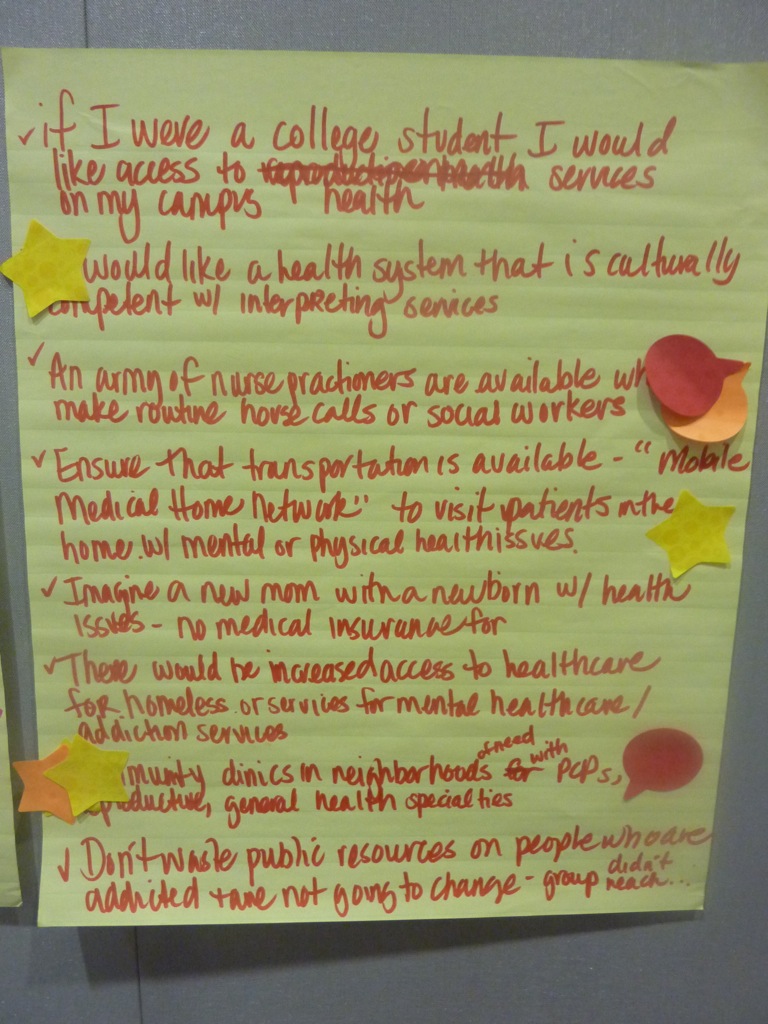 ✓ if I were a college student I would
like access to services
on my campus health
would like a health system that is culturally
competent w/ interpreting services
✓ An army of nurse practioners are available wh
make routine house calls or social workers
✓ Ensure that transportation is available - "Mobile
Medical Home Network" to visit patients in the
home w/ mental or physical health issues.
✓ Imagine a new mom with a newborn w/ health
issues - no medical insurance for
✓ There would be increased access to healthcare
for homeless or services for mental healthcare/
addiction services
munity clinics in neighborhoods of need with PCPs,
reproductive, general health specialties
✓ Don't waste public resources on people who are
addicted + are not going to change - group didn't
reach...